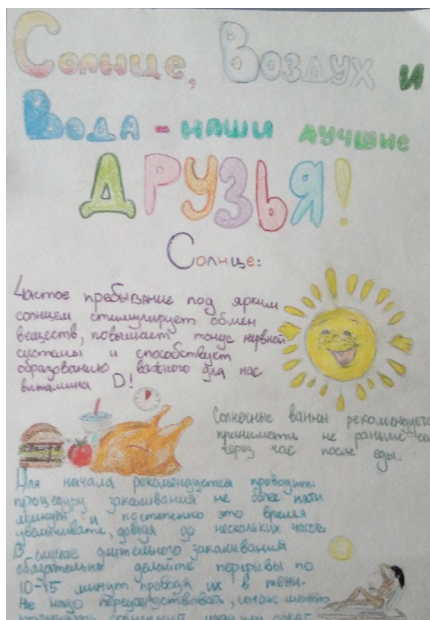 Солнце, Воздух и
Вода - наши лучшие
ДРУЗЬЯ!
Солнце:
Частое пребывание под ярким
солнцем стимулирует обмен
веществ, повышает тонус нервной
системы и способствует
образованию важного для нас
витамина D!
Солнечные ванны рекомендуется
принимать не раньше чем
через час после еды.
Для начала рекомендуется проводить
процедуру закаливания не более пяти
минут и постепенно это время
увеличивать, доводя до нескольких часов
В случае длительного закаливания
обязательно делайте перерывы по
10-15 минут проводя их в тени.
Не надо переусердствовать, иначе можно
получить солнечный или